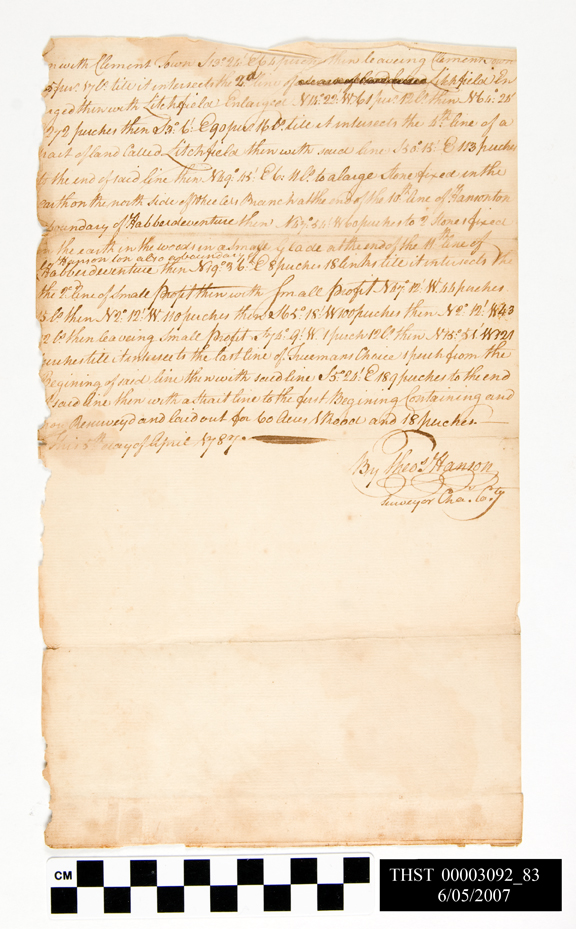 n with Clement Town S13°25' E 64 perches then leaveing Clement
5 pers 17 ls. till it intersects the 2d line of Litchfield En
arged then with Litchfield Enlarged N42°22' W 61 pers 12 ls then N64° 25'
272 perches then S5° 6' E 90 pers 16 ls. till it intersects the 4th line of a
tract of land Called Litchfield then with said line S 15' E 113 perches
to the end of said line then N49° 45' E 6: 11 ls. to a large Stone fixed in the
earth on the north Side of Wheelers Branch at the end of the 10th line of Hansonton
boundary of Habberdeventure then N37° 54' W 60 perches to 2 Stones fixed
in the earth in the woods in a Small Glade at the end of the 11th line of
of Hansonton also a boundary of
Habberdeventure then N19° 36' E 8 perches 18 links till it intersects the
the 2d line of Small Profit then with Small Profit N47° 12' W 44 perches
5 ls then N2° 12' W 110 perches then 65° 18' W 100 perches then N2° 12' W 43
12 ls then leaveing Small Profit 75° 9' W 1 perch 12 ls. then N15° 51' W 124
perches till it intersects the last line of Freemans Choice 1 perch from the
Begining of said line then with said line S5° 25' E 189 perches to the end
of said line then with a strait line to the first Begining Containing and
now Resurveyd and laid out for 60 Acres 1 Rood and 18 perches
This 5th day of April 1787
By Theos. Hanson
Surveyor Cha. Cty
CM
THST 00003092_83
6/05/2007